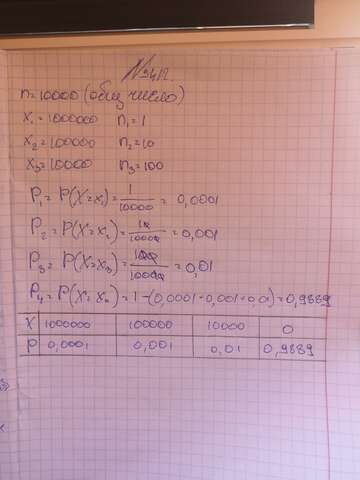 n=10000 (общ число)
x₁=1000000 n₁=1
x₂=100000 n₂=10
x₃=10000 n₃=100
P₁=P(X=x₁)=1/10000=0,0001
P₂=P(X=x₂)=10/10000=0,001
P₃=P(X=x₃)=100/10000=0,01
P₄=P(X=x₄)=1-(0,0001+0,001+0,01)=0,9889
X 1000000 100000 10000 0
P 0,0001 0,001 0,01 0,9889